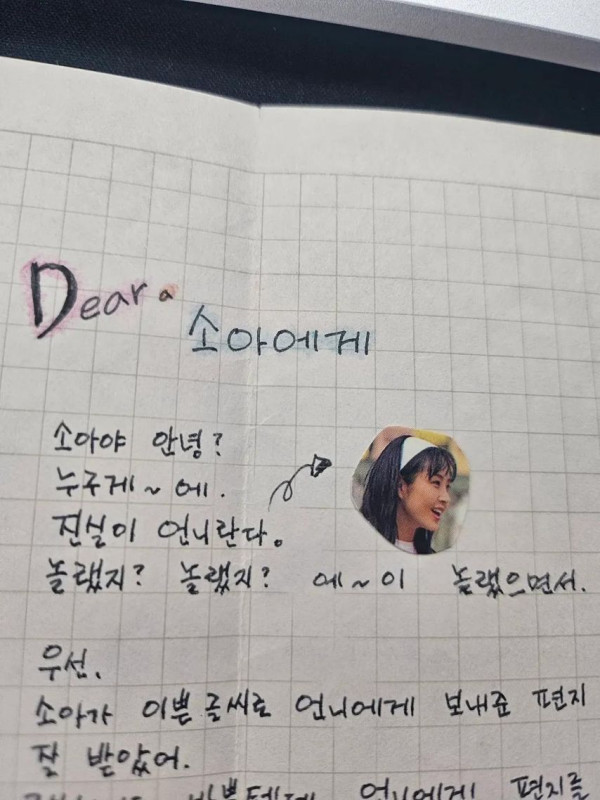 Dear a
소아에게
소아야 안녕?
누구게~ 에.
진실이 언니란다.
놀랬지? 놀랬지? 에~이 놀랬으면서.
우선,
소아가 이쁜 글씨로 언니에게 보내준 편지
잘 받았어.
바쁠텐데 언니에게 편지를